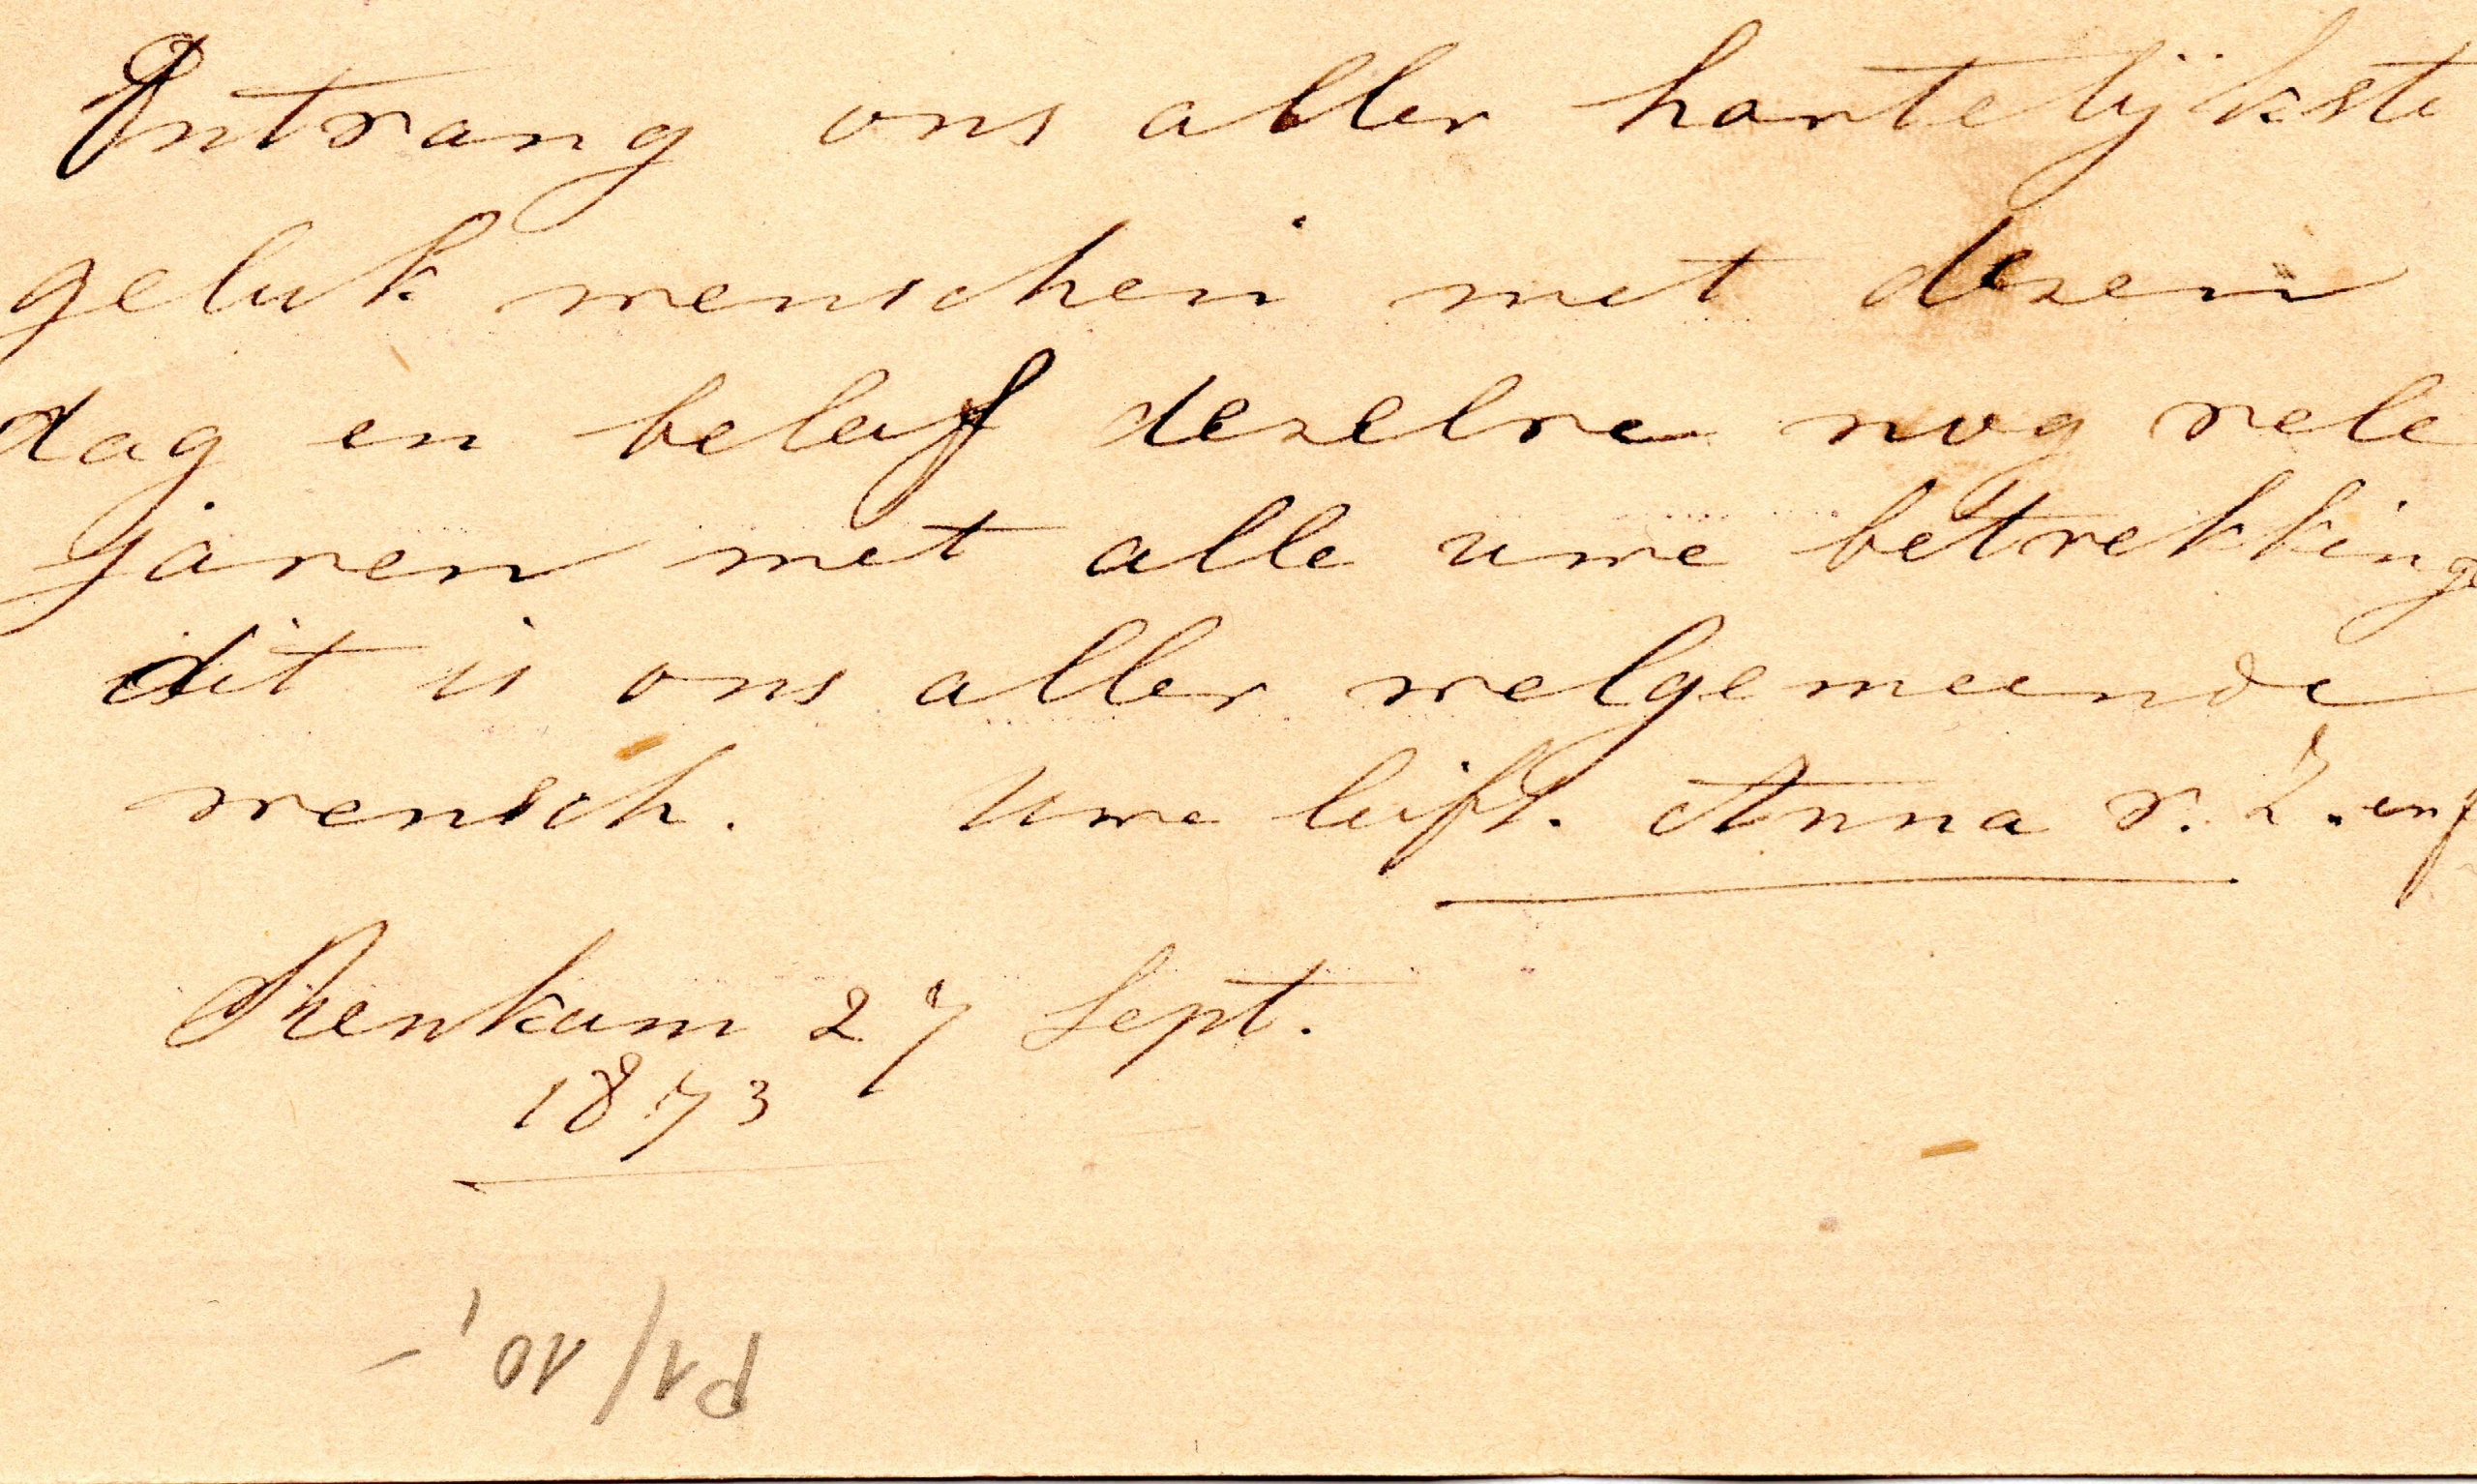 Ontvang ons aller hartelijkste
geluk wenschen met dezen
dag en beleef dezelve nog vele
jaren met alle uwe betrekkinge
dit is ons aller welgemeende
wensch. Uwe Anna v. Z.
Renkum 27 Sept.
1873
P1/10,-